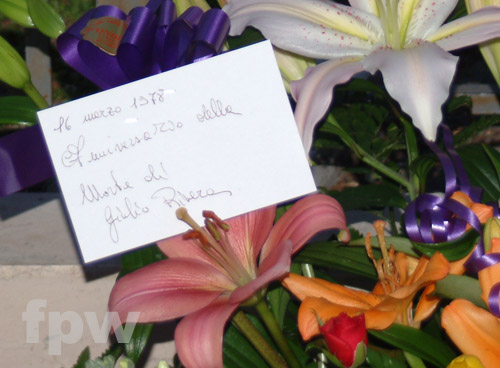 16 marzo 1978
Anniversario della
Morte di
Giulio Rivera
fpw